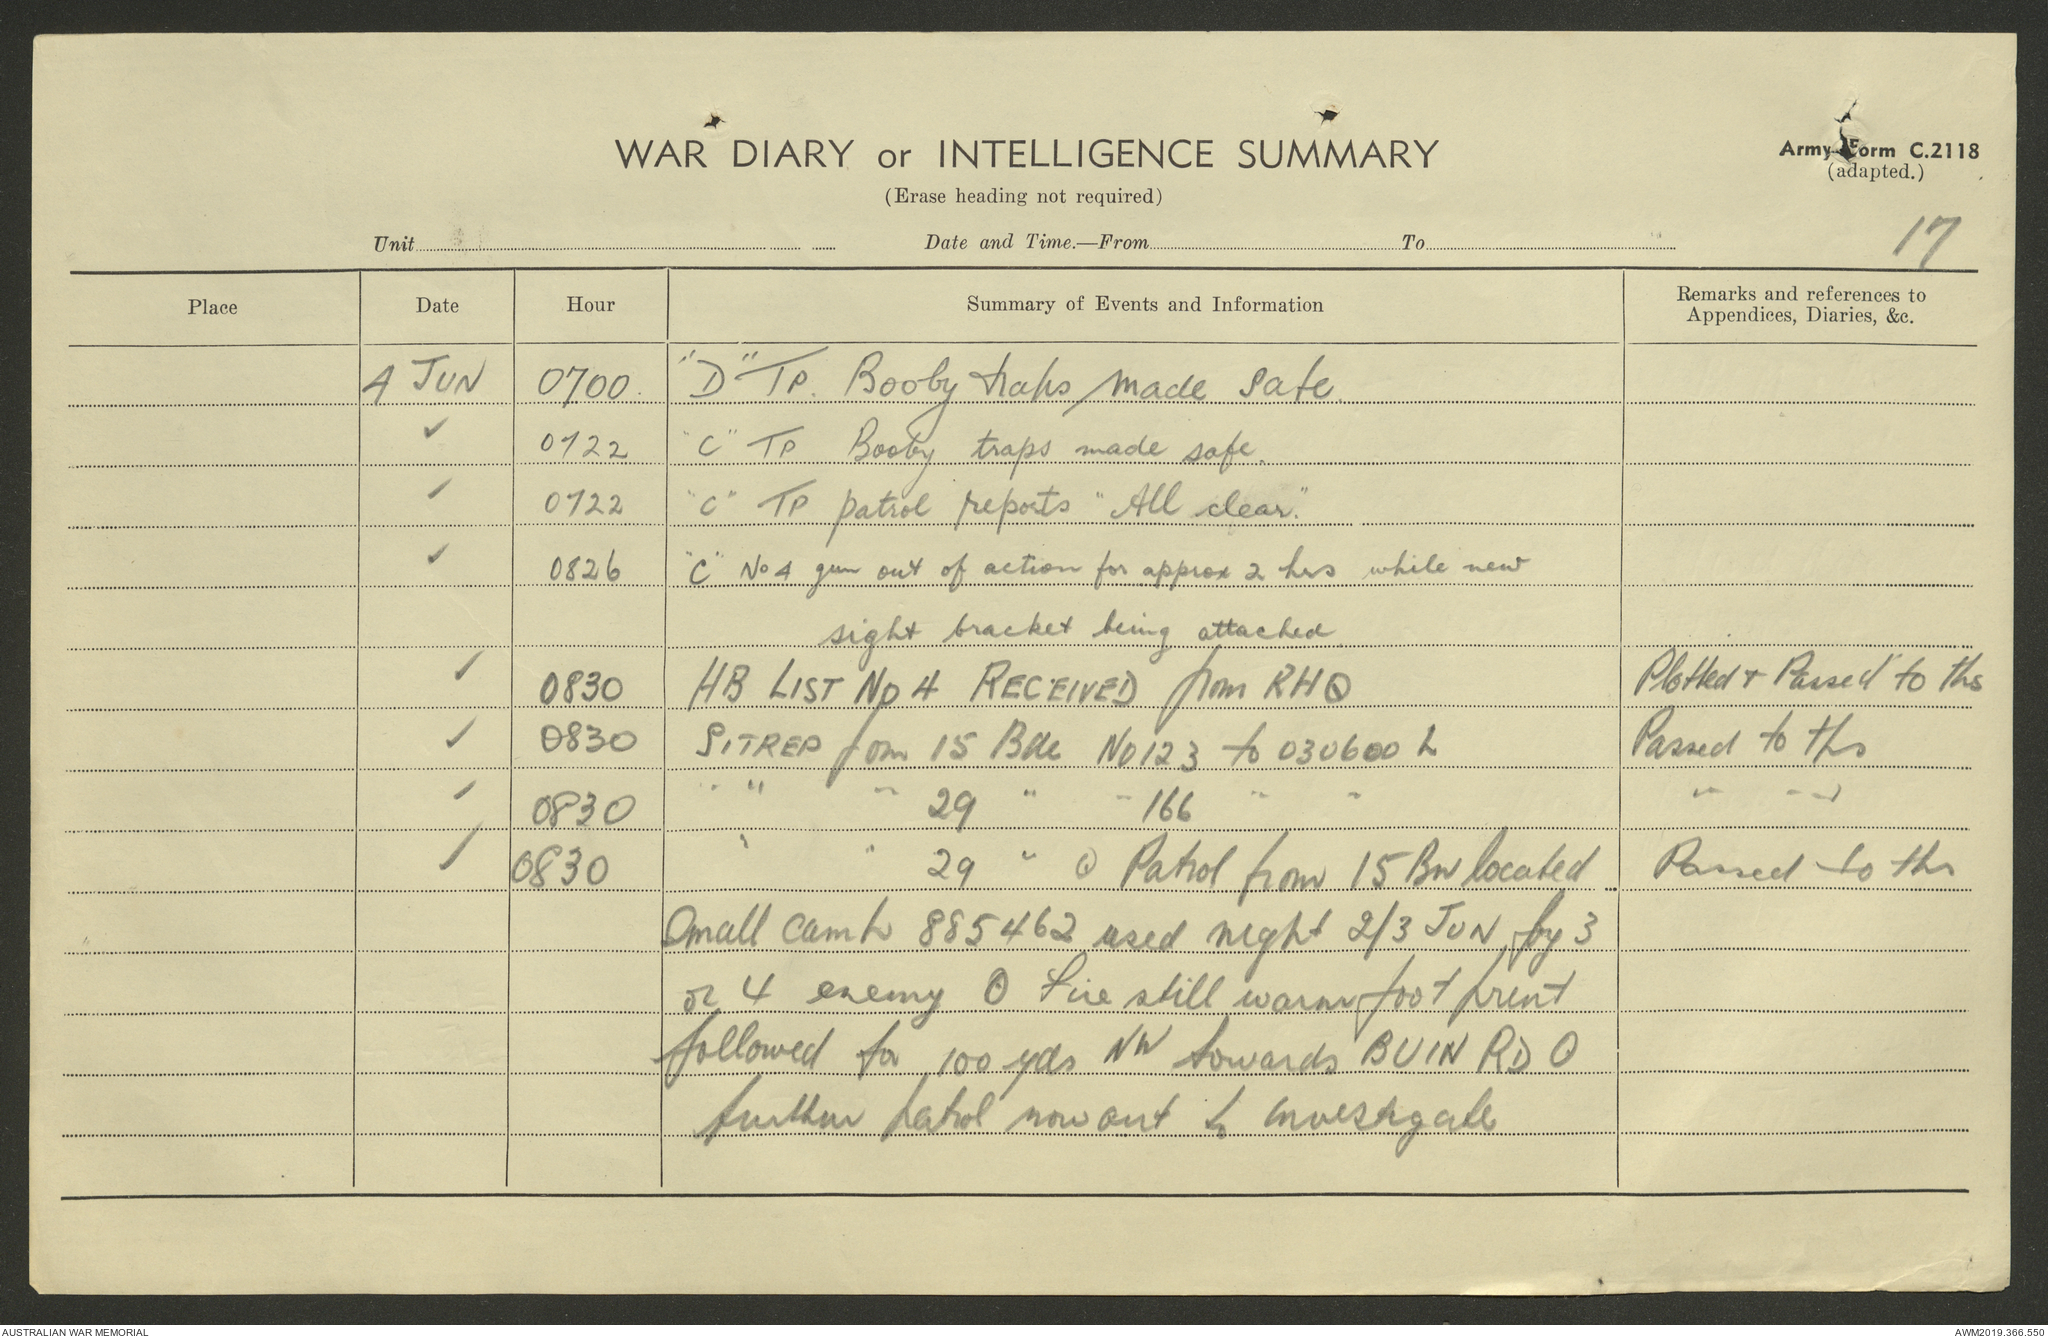 WAR DIARY or INTELLIGENCE SUMMARY
Army Form C.2118
(adapted.)
(Erase heading not required)
17
Unit Date and Time.—From To
Place Date Hour Summary of Events and Information Remarks and references to Appendices, Diaries, &c.
4 JUN 0700. "D" TP. Booby traps made safe.
✓ 0722 "C" TP Booby traps made safe.
✓ 0722 "C" TP patrol reports "All clear."
✓ 0826 "C" No 4 gun out of action for approx 2 hrs while new
sight bracket being attached
✓ 0830 HB LIST No 4 RECEIVED from RHQ Plotted & Passed to tps
✓ 0830 SITREP from 15 Bde No 123 to 030600 L Passed to tps
✓ 0830 " " " 29 " " 166 " " " " "
✓ 0830 " " 29 " O Patrol from 15 BN located Passed to tps
small camp 885462 used night 2/3 JUN, by 3
or 4 enemy O Fire still warm foot print
followed for 100 yds NW towards BUIN RD O
further patrol now out to investigate
AUSTRALIAN WAR MEMORIAL AWM2019.366.550